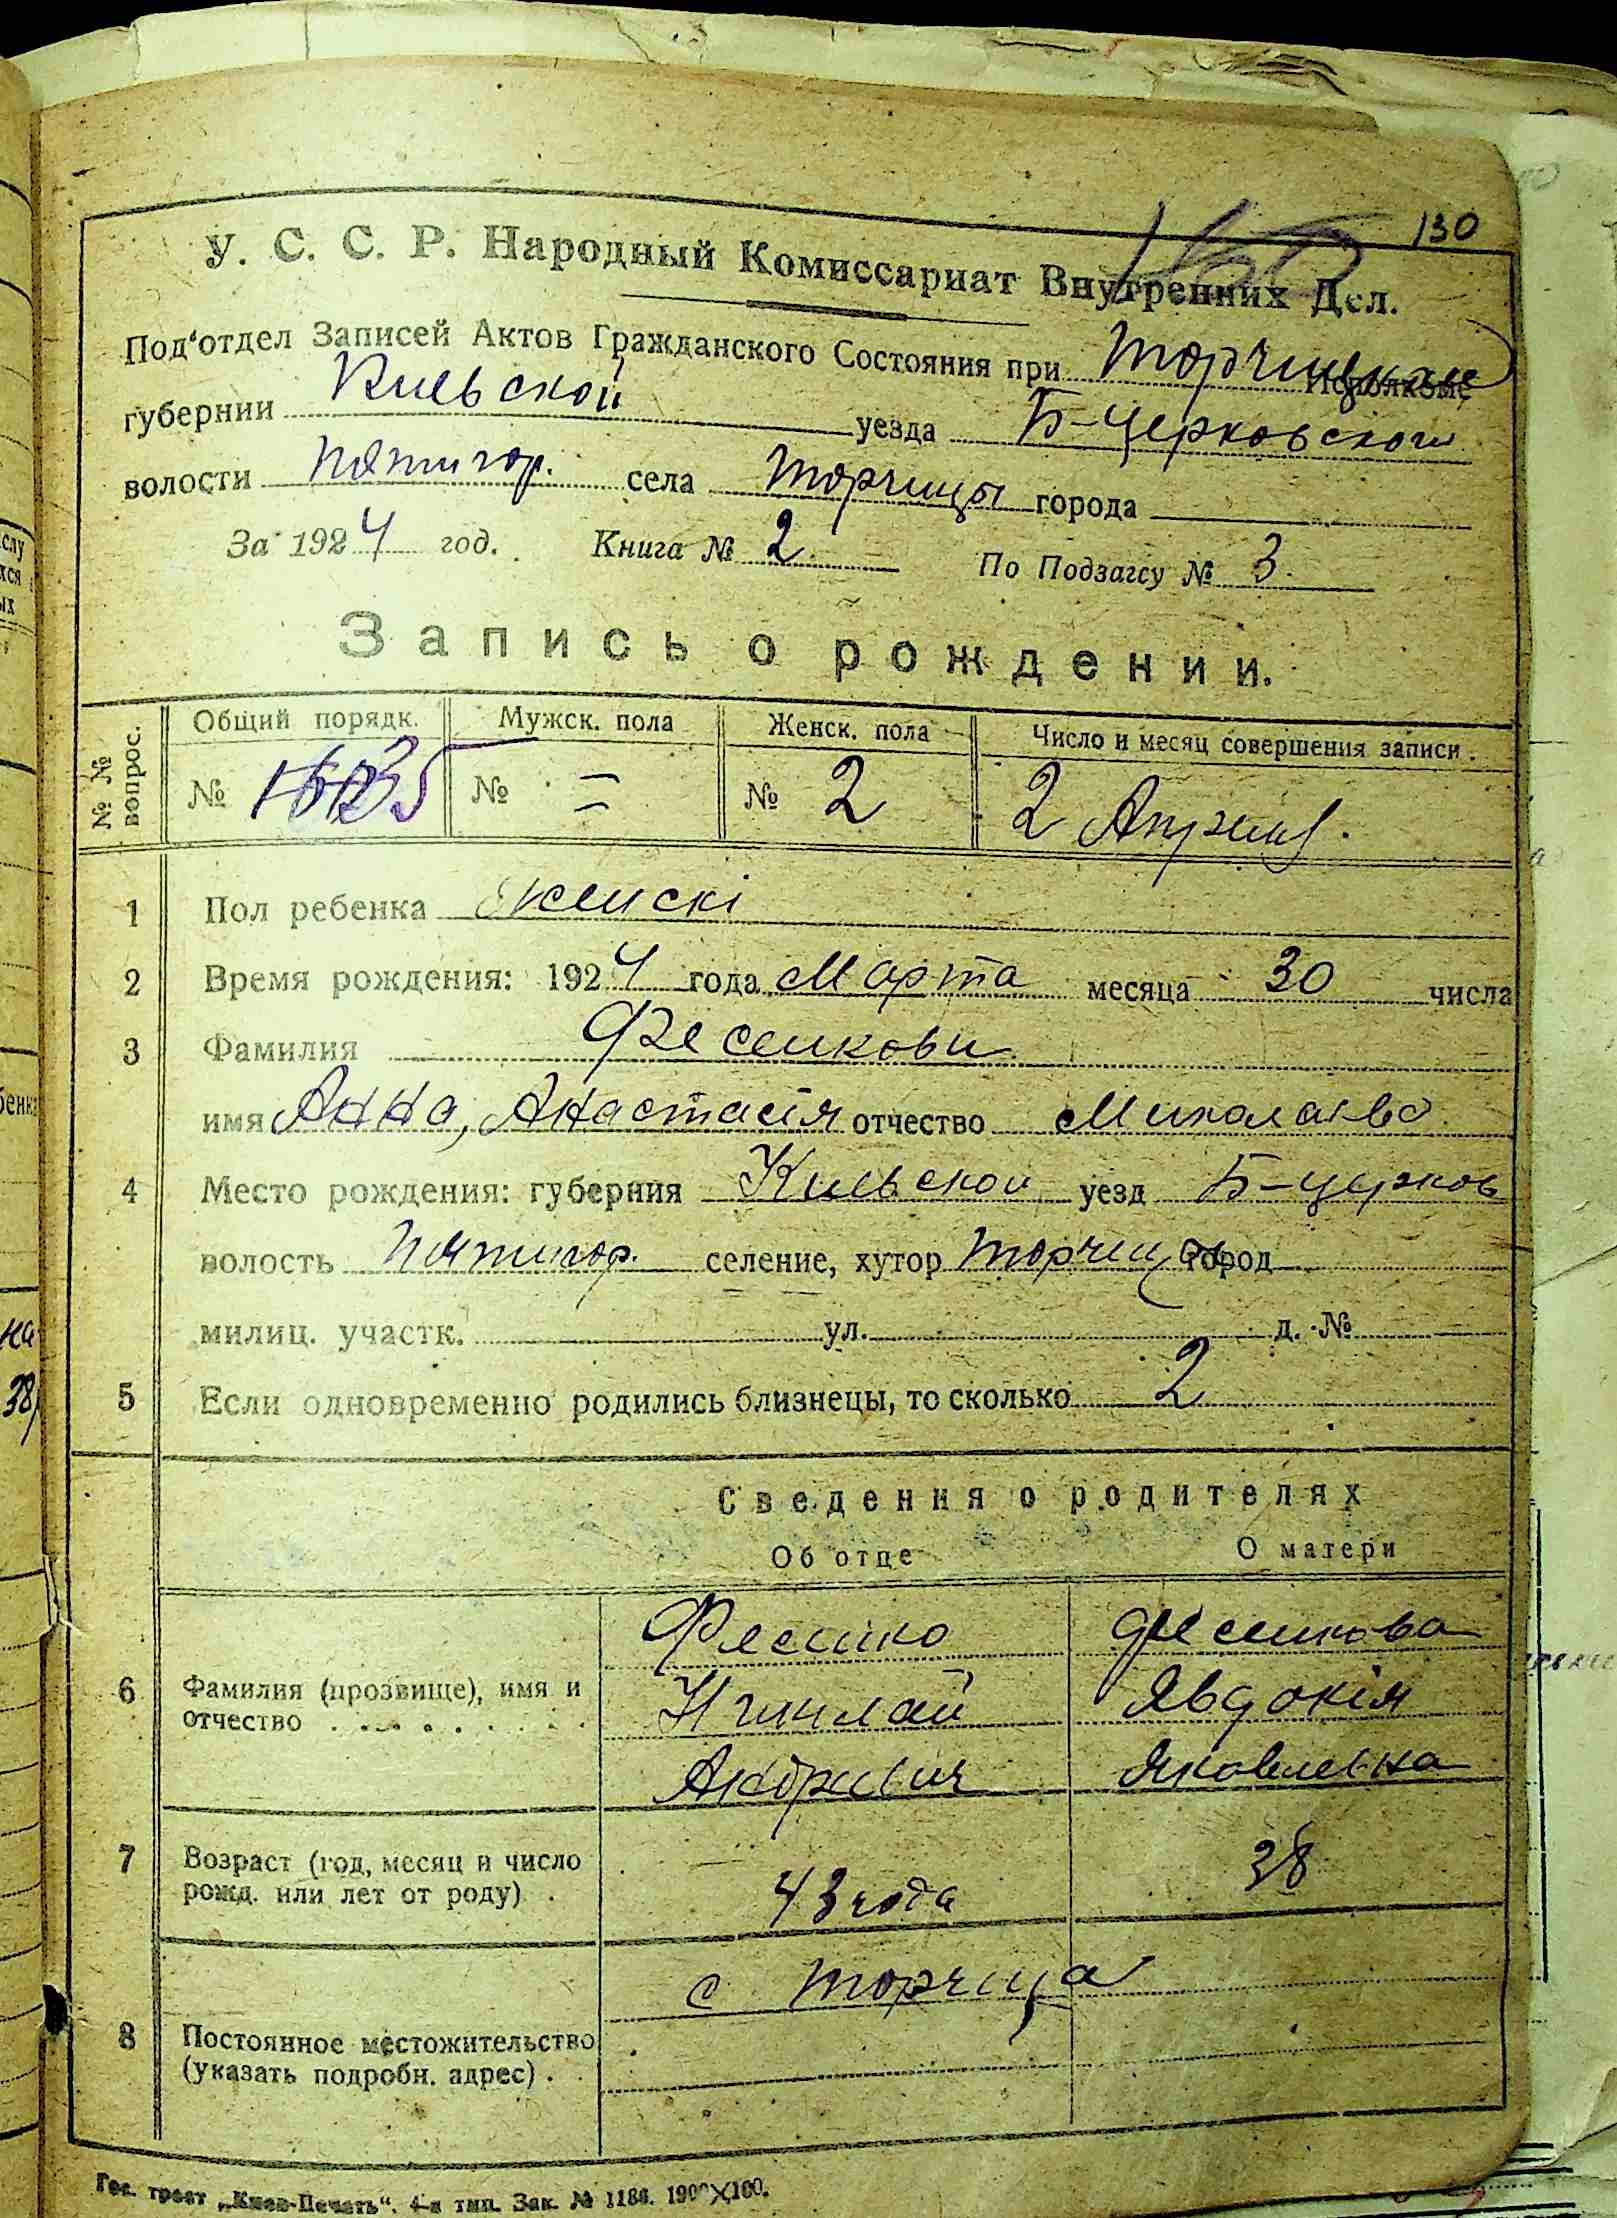 130
У. С. С. Р. Народный Комиссариат Внутренних Дел.
Под'отдел Записей Актов Гражданского Состояния при Исполкоме
губернии Киевской уезда Б-Церковского
волости Пятигор. села Торчицы города
За 1924 год. Книга № 2 По Подзагсу № 3.
Запись о рождении.
№ № вопрос. Общий порядк. Мужск. пола Женск. пола Число и месяц совершения записи.
№ 35 № = № 2 2 Апреля.
1 Пол ребенка женскі
2 Время рождения: 1924 года Марта месяца 30 числа
3 Фамилия Фесенкови
имя Анна, Анастасія отчество
4 Место рождения: губерния Киевской уезд Б-церков
волость Пятигор. селение, хутор Торчица город
милиц. участк. ул. д. №
5 Если одновременно родились близнецы, то сколько 2
Сведения о родителях
Об отце О матери
Фесенко Фесенкова
6 Фамилия (прозвище), имя и отчество Явдокія
Яковлевна
7 Возраст (год, месяц и число рожд. или лет от роду) 43 года 38
с Торчица
8 Постоянное местожительство
(указать подробн. адрес)
Гос. трест „Киев-Печать“. 4-я тип. Зак. № 1186. 1900×100.